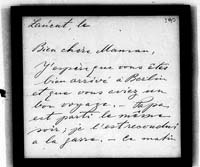 Laücut, le
190
Bien chère Maman,
J'espère que vous êtes
bien arrivé à Berlin
et que vous aviez un
bon voyage. — Papa
est parti le même
soir, je l'est reconduit
à la garre. — Ce matin